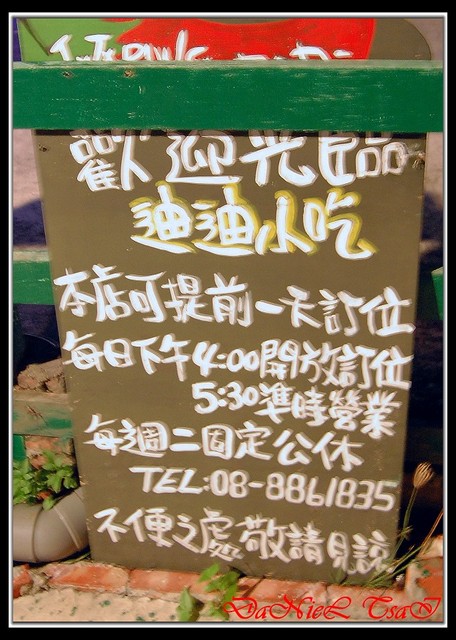 歡迎光臨
迪迪小吃
本店可提前一天訂位
每日下午4:00開放訂位
5:30準時營業
每週二固定公休
TEL:08-8861835
不便之處敬請見諒
DaNieL TsaI